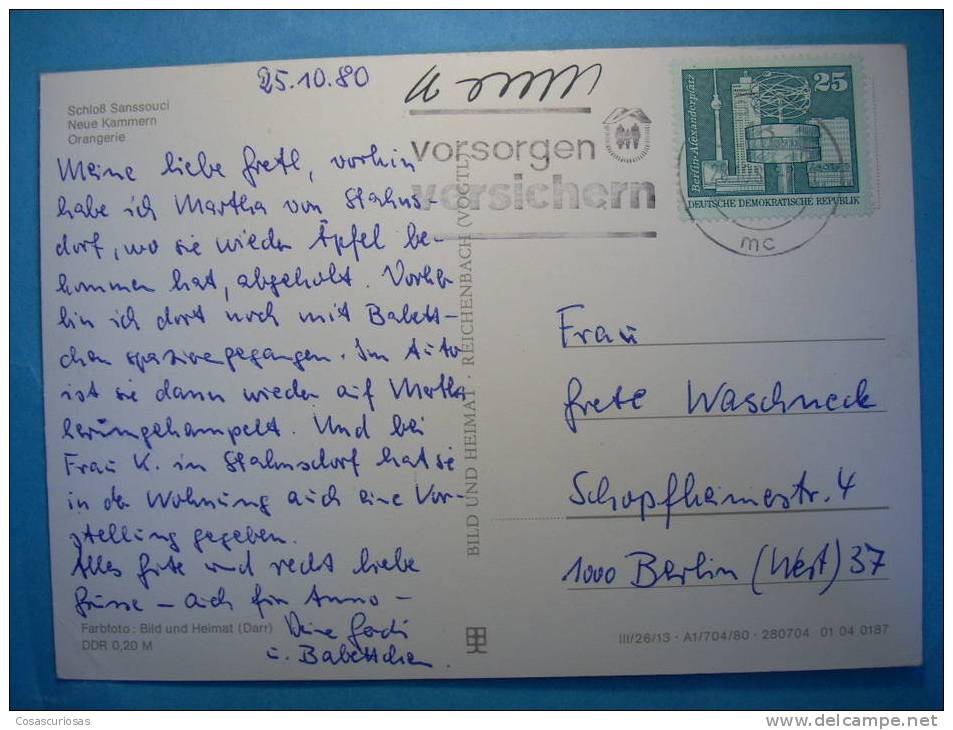 25.10.80
Schloß Sanssouci
Neue Kammern
Orangerie
Meine liebe Gretl, vorhin
habe ich Martha von Stahns-
dorf, wo sie wieder Äpfel be-
kommen hat, abgeholt. Vorher
bin ich dort noch mit Babett-
chen spazierengegangen. Im Auto
ist sie dann wieder auf Martha
herumgehampelt. Und bei
Frau K. in Stahnsdorf hat sie
in der Wohnung auch eine Vor-
stellung gegeben.
Alles Gute und recht liebe
Grüsse – auch für Anno –
Deine
u. Babettchen.
Farbfoto: Bild und Heimat (Darr)
DDR 0,20 M
BILD UND HEIMAT · REICHENBACH (VOGTL)
vorsorgen
versichern
Berlin-Alexanderplatz
25
DEUTSCHE DEMOKRATISCHE REPUBLIK
mc
Frau
Grete Waschneck
Schopfheimerstr. 4
1000 Berlin (West) 37
III/26/13 · A1/704/80 · 280704 01 04 0187
Cosascuriosas
www.delcampe.net